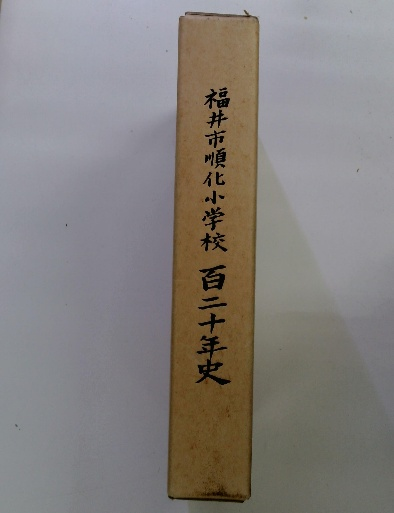 福井市順化小学校 百二十年史